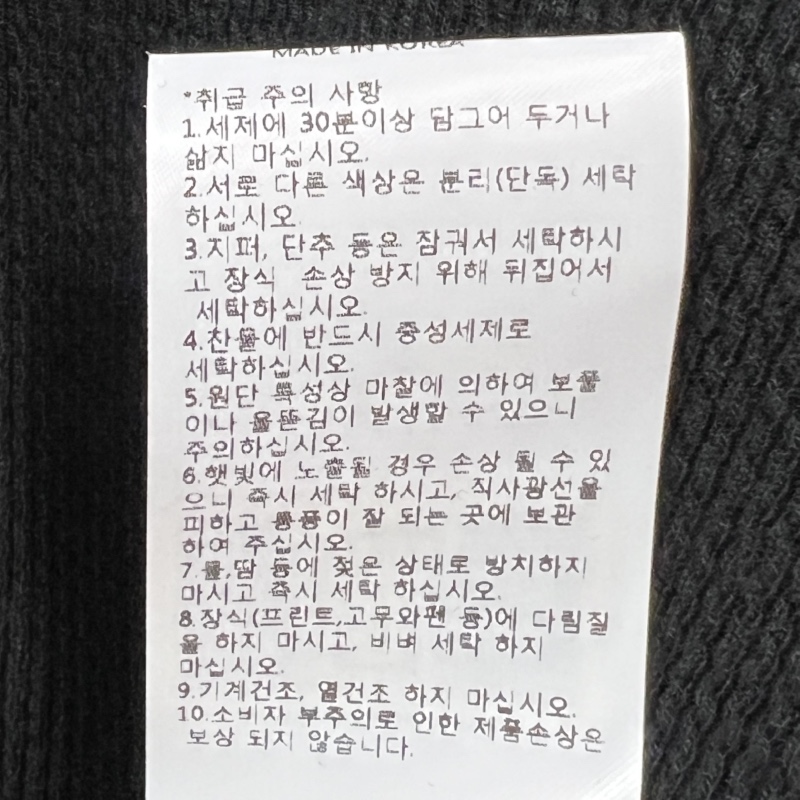 MADE IN KOREA
*취급 주의 사항
1.세제에 30분이상 담그어 두거나
삶지 마십시오.
2.서로 다른 색상은 분리(단독) 세탁
하십시오
3.지퍼, 단추 등은 잠궈서 세탁하시
고 장식 손상 방지 위해 뒤집어서
세탁하십시오.
4.찬물에 반드시 중성세제로
세탁하십시오.
5.원단 특성상 마찰에 의하여 보풀
이나 올뜯김이 발생할 수 있으니
주의하십시오.
6.햇빛에 노출될 경우 손상 될 수 있
으니 즉시 세탁 하시고, 직사광선을
피하고 통풍이 잘 되는 곳에 보관
하여 주십시오.
7.물,땀 등에 젖은 상태로 방치하지
마시고 즉시 세탁 하십시오.
8.장식(프린트,고무와펜 등)에 다림질
을 하지 마시고, 비벼 세탁 하지
마십시오.
9.기계건조, 열건조 하지 마십시오.
10.소비자 부주의로 인한 제품손상은
보상 되지 않습니다.